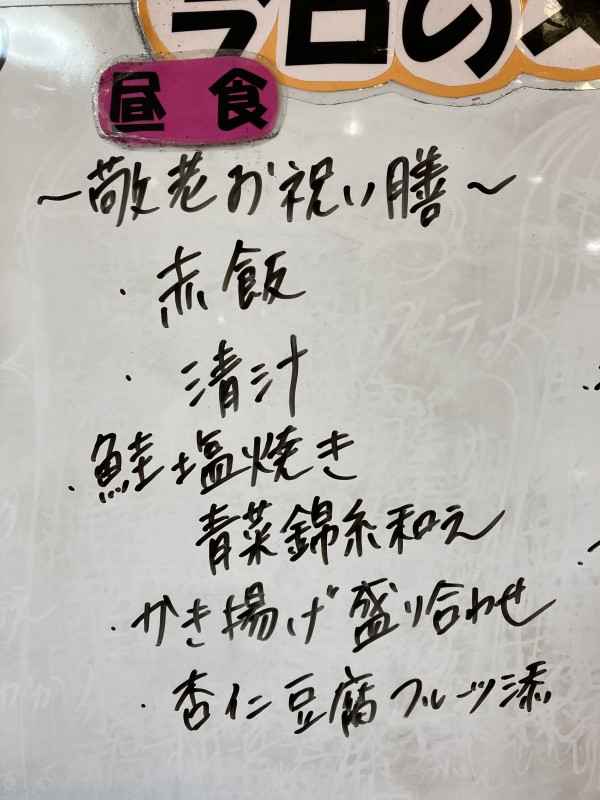 今日の
昼食
～敬老お祝い膳～
・赤飯
・清汁
・鮭塩焼き
青菜錦糸和え
・かき揚げ盛り合わせ
・杏仁豆腐フルーツ添